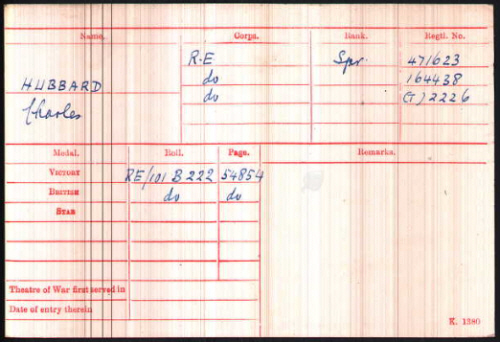 Name. Corps. Rank. Regtl. No.
R.E Spr. 471623
HUBBARD do 164438
Charles do (T) 2226
Medal. Roll. Page. Remarks.
VICTORY RE/101 B 222 54854
BRITISH do do
STAR
Theatre of War first served in
Date of entry therein
K. 1380